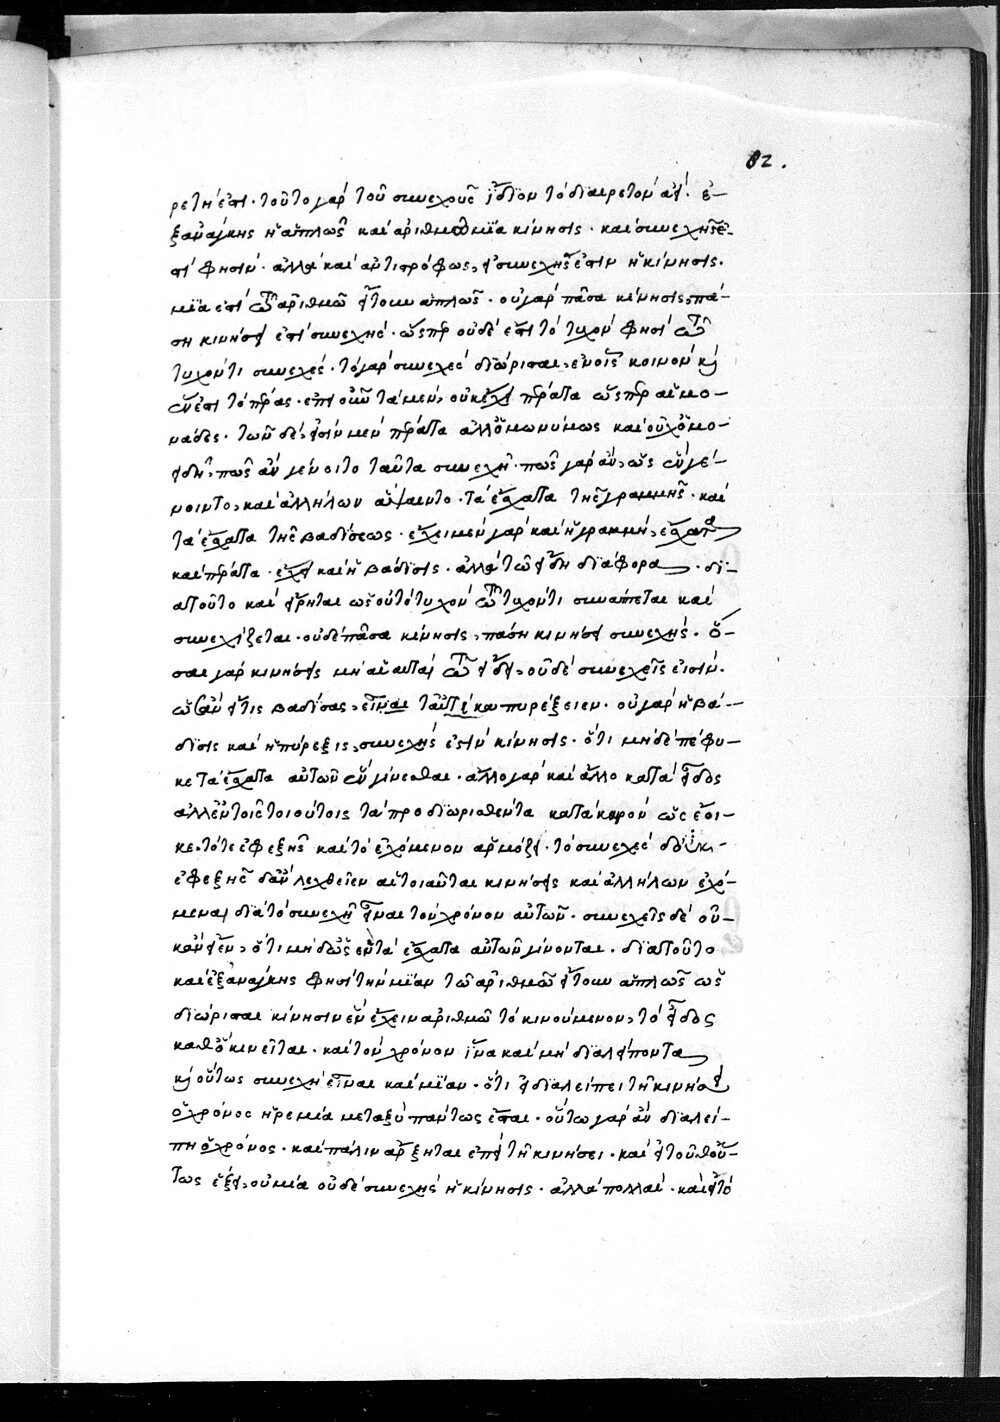 82.
ρετή ἐστι· τοῦτο γάρ τοῦ συνεχοῦς ἴδϊον τὸ διαιρετὸν ἀεί. ἐ-
ξανάγκης ἡ ἁπλῶς καὶ ἀριθμῶ μία κίνησις· καὶ συνεχής ἐ-
στί φησιν· ἀλλὰ καὶ ἀντιστρόφως, εἰ συνεχής ἐστιν ἡ κίνησις.
μία ἐστὶ τῶ ἀριθμῶ ἤτουν ἁπλῶς· οὐ γὰρ πᾶσα κίνησις πά-
ση κινήσει ἐστὶ συνεχής· ὥσπερ οὐδέ ἐστι τὸ τυχόν φησι τῶ
τυχόντι συνεχές· τὸ γὰρ συνεχές διώρισται, ἐν οἷς κοινὸν καὶ
ἕν ἐστι τὸ πέρας· ἐπεὶ οὖν τὰ μέν, οὐκ ἔχει πέρατα ὥσπερ αἱ μο-
νάδες· τῶν δέ, εἰσὶν μὲν πέρατα ἀλλ' ὁμωνύμως καὶ οὐχ ὁμο-
ειδῆ, πῶς ἂν γένοιτο ταῦτα συνεχῆ· πῶς γὰρ ἂν, ὡς ἓν γέ-
νοιντο, καὶ ἀλλήλων ἅψαιντο· τὰ ἔσχατα τῆς γραμμῆς· καὶ
τὰ ἔσχατα τῆς βαδίσεως· ἔχει μὲν γὰρ καὶ ἡ γραμμή, ἔσχατα
καὶ πέρατα· ἔχει καὶ ἡ βάδϊσις· ἀλλὰ τῶ εἴδη διάφορα· δι-
ατοῦτο καὶ εἴρηται ὡς οὐ τὸ τυχόν τῶ τυχόντι συνάπτεται καὶ
συνεχίζεται· οὐδὲ πᾶσα κίνησις, πάση κινήσει συνεχής· ὅ-
σαι γὰρ κινήσεις μὴ αἱ αὐταὶ τῶ εἴδει, οὐδὲ συνεχεῖς εἰσίν.
ὡς ἂν εἴ τις βαδίσας, εἶναι ταὐτὸ καὶ πυρέξειεν· οὐ γὰρ ἡ βά-
δϊσις καὶ ἡ πύρεξις, συνεχής ἐστιν κίνησις· ὅτι μηδὲ πέφυ-
κε τὰ ἔσχατα αὐτῶν ἓν γίνεσθαι· ἄλλο γὰρ καὶ ἄλλο κατὰ εἶδος
ἀλλ' ἐν τοῖς τοιούτοις τὰ προδϊωρισθέντα κατὰ καιρόν ὡς ἔοι-
κε· τό τε ἐφεξῆς καὶ τὸ ἐχόμενον ἁρμόζει· τὸ συνεχὲς δὲ οὐκ·-
ἐφεξῆς δ' ἂν λεχθεῖεν αἱ τοιαῦται κινήσεις καὶ ἀλλήλων ἐχό-
μεναι διὰ τὸ συνεχῆ εἶναι τὸν χρόνον αὐτῶν· συνεχεῖς δὲ οὐ-
κ ἂν εἶεν, ὅτι μηδ' ὡς ἓν τὰ ἔσχατα αὐτῶν γίνονται· διατοῦτο
καὶ ἐξανάγκης φησὶ τὴν μίαν τῶ ἀριθμῶ ἤτουν ἁπλῶς ὡς
διώρισται κίνησιν ἓν ἔχειν ἀριθμῶ τὸ κινούμενον, τὸ εἶδος
καθὸ κινεῖται· καὶ τὸν χρόνον ἵνα καὶ μὴ διαλείποντα
καὶ οὕτως συνεχῆ εἶναι καὶ μίαν· ὅτι εἰ διαλείπει τῆ κινήσει
ὁ χρόνος ἠρεμία μεταξὺ πάντως ἔσται· οὕτω γὰρ ἂν διαλεί-
πη ὁ χρόνος· καὶ πάλιν ἄρξηται ἐπὶ τῆ κινήσει· καὶ εἰ τοῦθ' οὕ-
τως ἕξει, οὐ μία οὐδὲ συνεχής ἡ κίνησις· ἀλλὰ πολλαί· καὶ εἰ τὸ